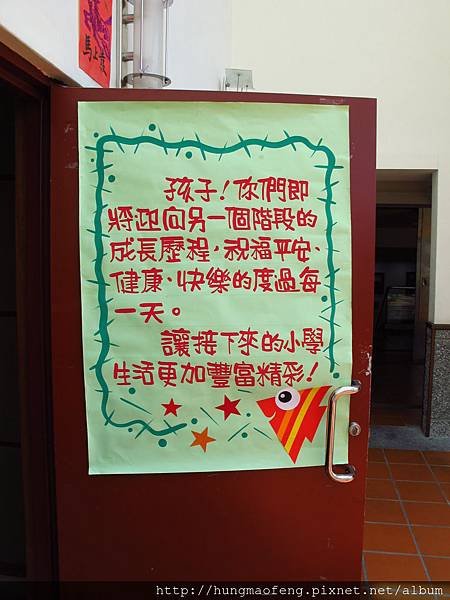 馬上
孩子！你們即
將迎向另一個階段的
成長歷程，祝福平安、
健康、快樂的度過每
一天。
讓接下來的小學
生活更加豐富精彩！
http://hungmaofeng.pixnet.net/album